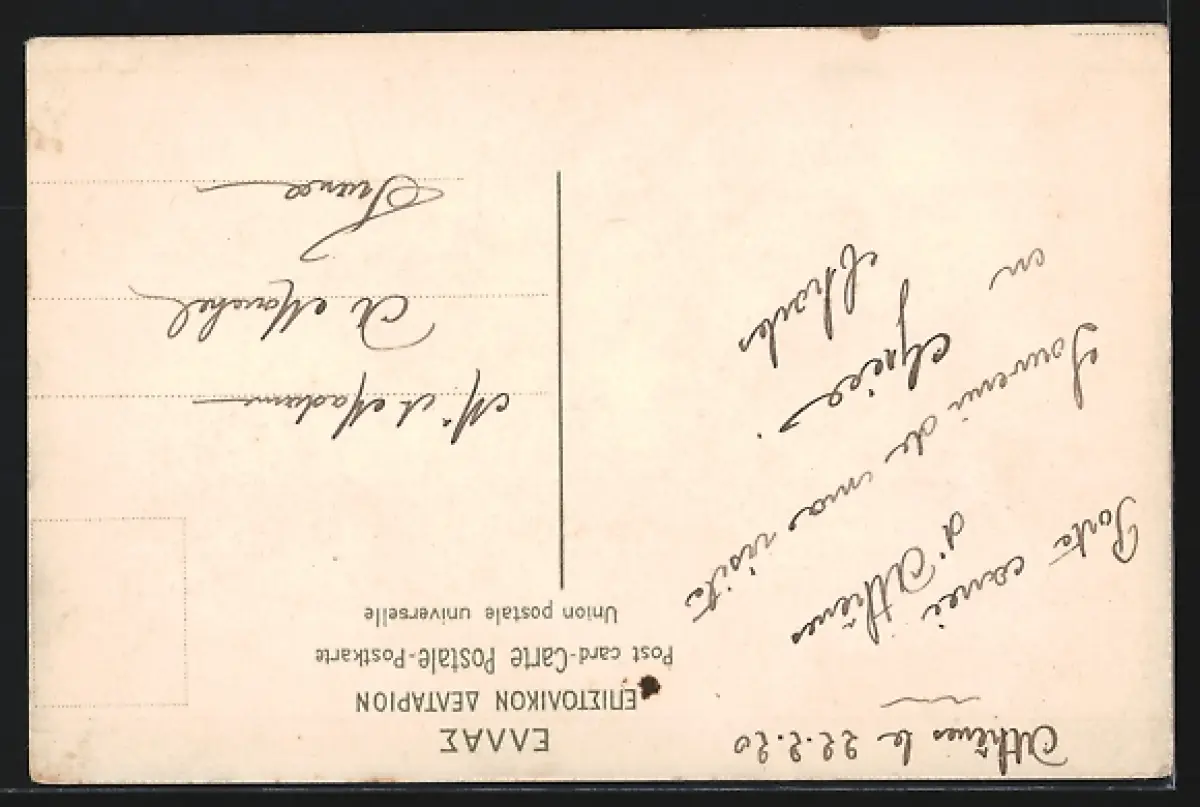 ΕΛΛΑΣ
ΕΠΙΣΤΟΛΙΚΟΝ ΔΕΛΤΑΡΙΟΝ
Post card-Carte Postale-Postkarte
Union postale universelle
Athènes le 22.2.20
d'Athènes
Souvenir de ma visite
en Grèce.
Mr et Madame
France